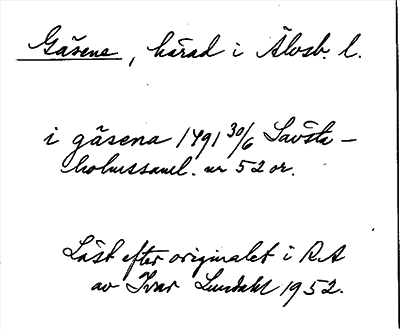 Gäsene, härad i Älvsb. l.
i gäsena 1491 30/6 Sävsta-
holmssaml. nr 52 or.
Läst efter originalet i R.A
av Ivar Lundahl 1952.